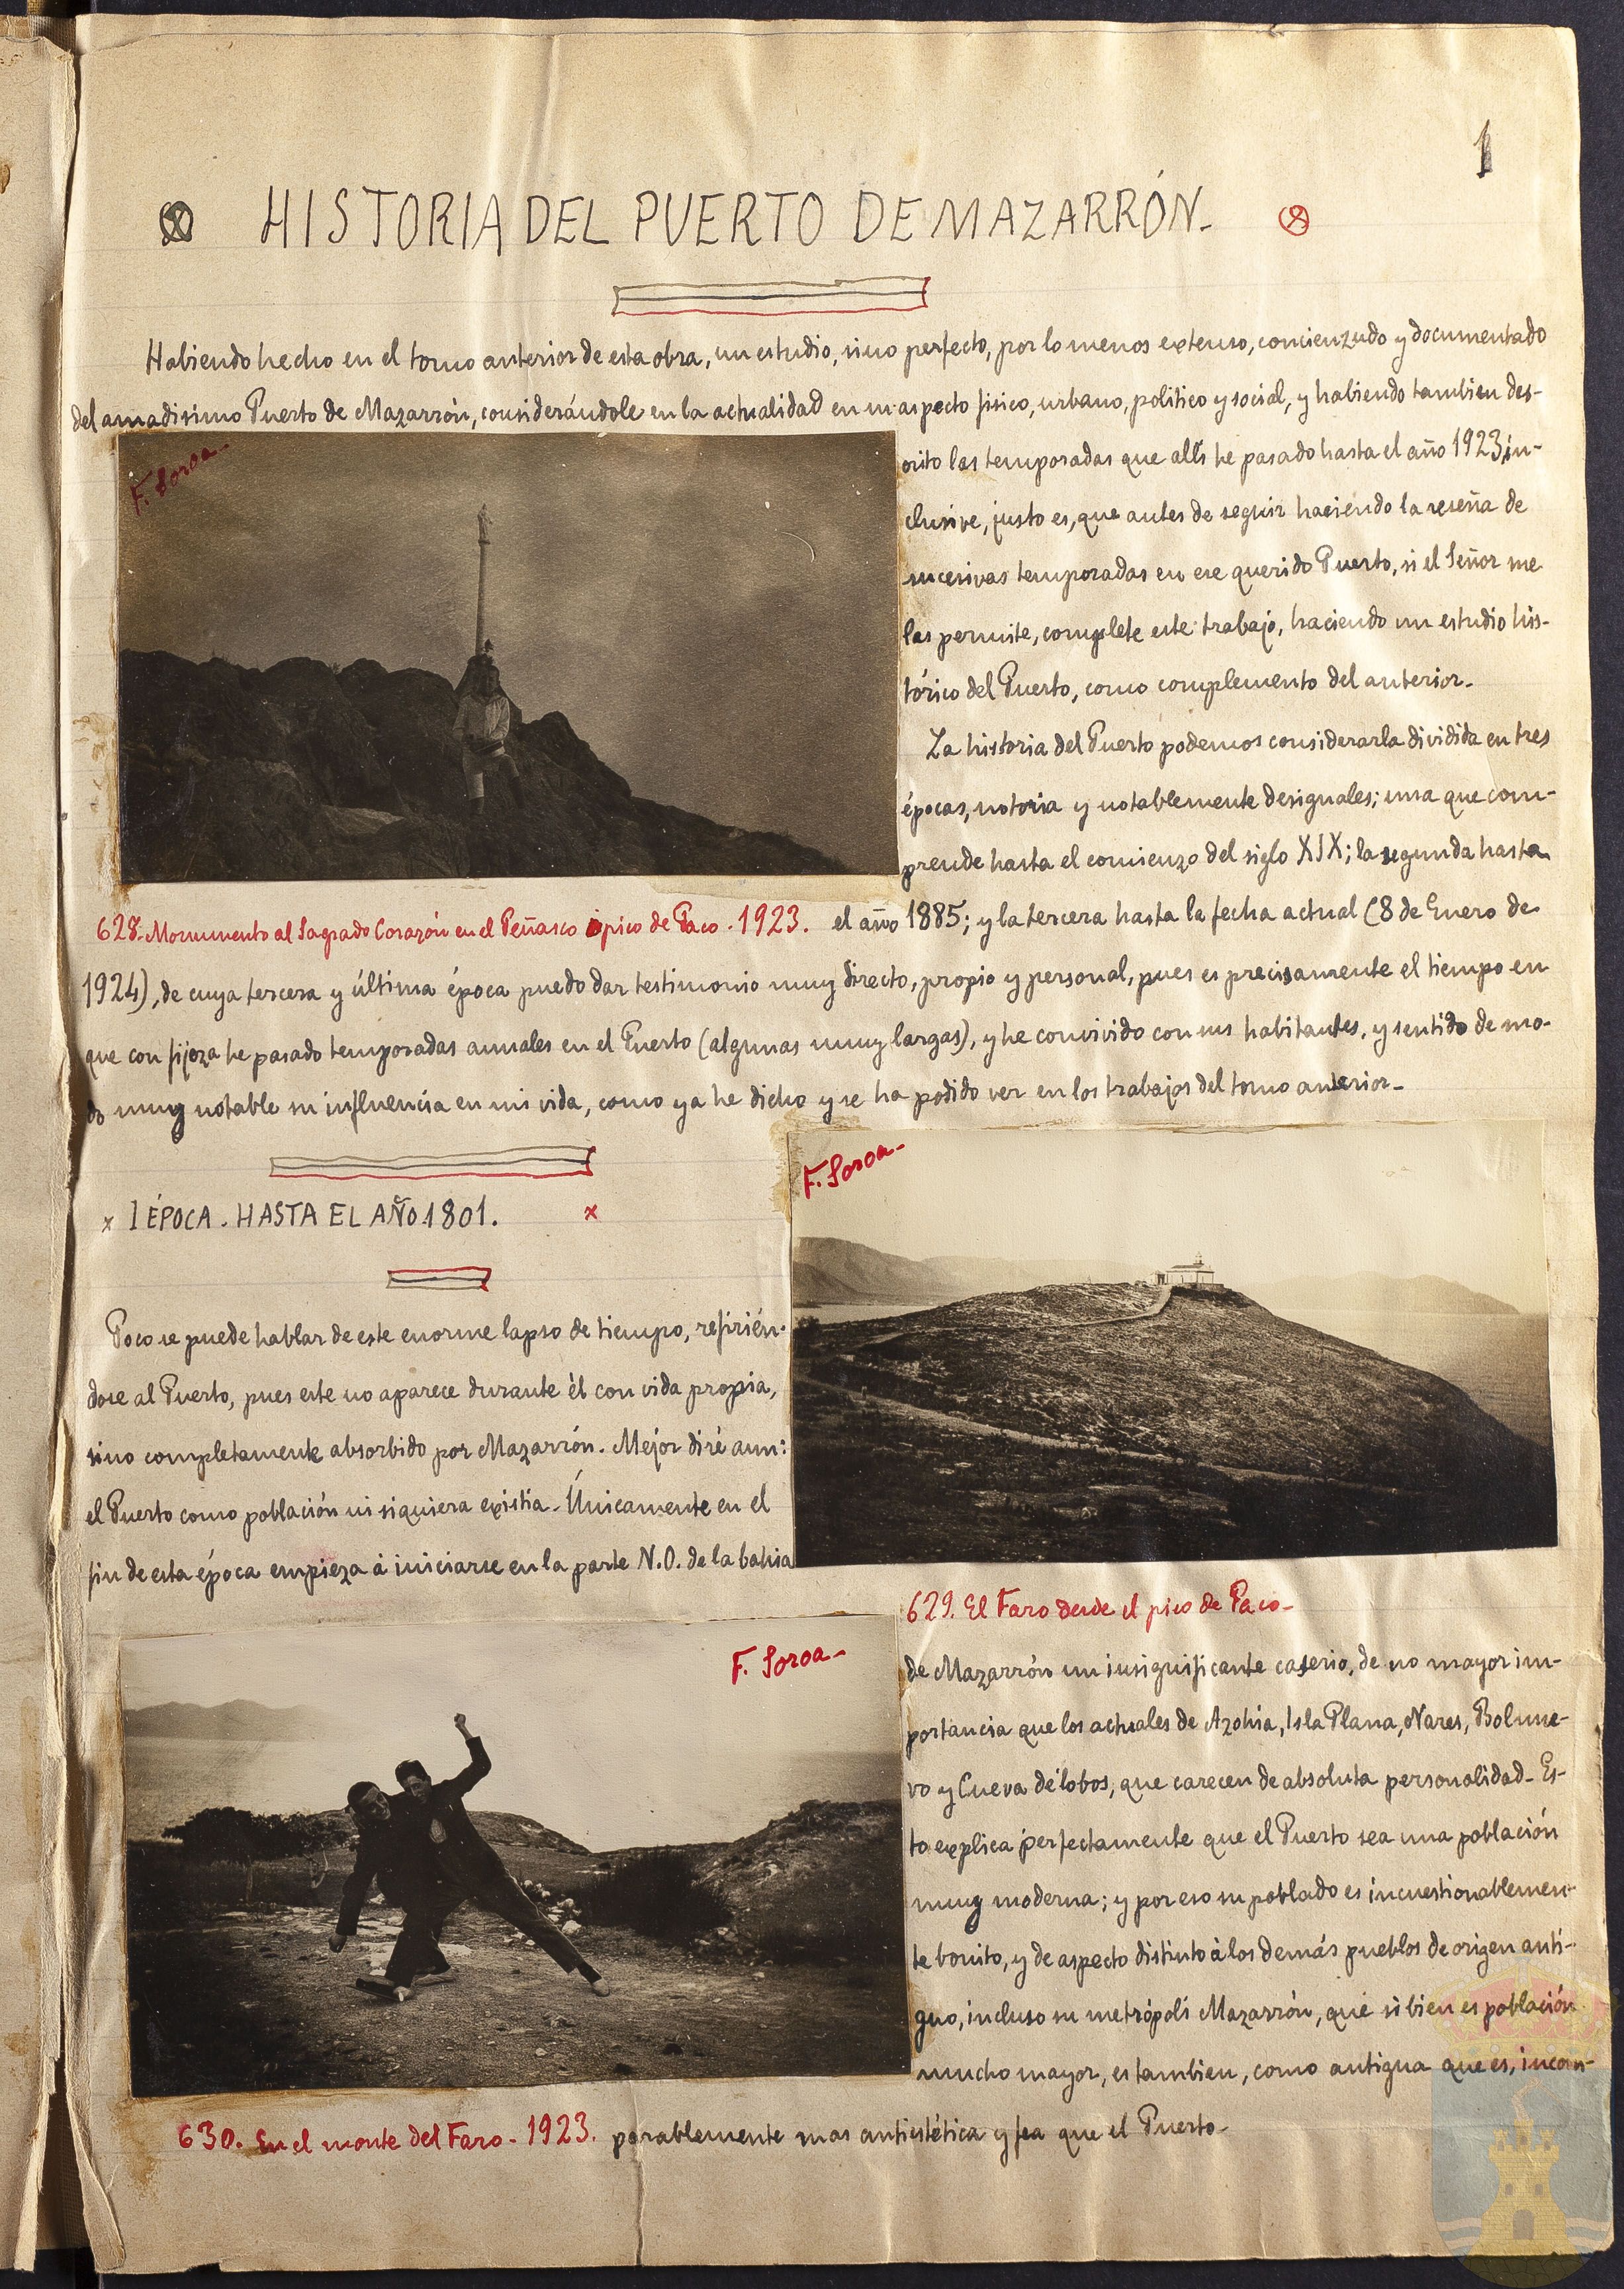 1
HISTORIA DEL PUERTO DE MAZARRÓN.-
Habiendo hecho en el tomo anterior de esta obra, un estudio, sino perfecto, por lo menos extenso, concienzudo y documentado
del amadisimo Puerto de Mazarrón, considerándole en la actualidad en su aspecto fisico, urbano, politico y social, y habiendo tambien des-
F. Soroa-
crito las temporadas que allí he pasado hasta el año 1923, in-
clusive, justo es, que antes de seguir haciendo la reseña de
sucesivas temporadas en ese querido Puerto, si el Señor me
las permite, complete este trabajo, haciendo un estudio his-
tórico del Puerto, como complemento del anterior.-
La historia del Puerto podemos considerarla dividida en tres
épocas, notoria y notablemente desiguales; una que com-
prende hasta el comienzo del siglo XIX; la segunda hasta
628.- Monumento al Sagrado Corazón en el Peñasco ó pico de Paco - 1923.
el año 1885; y la tercera hasta la fecha actual (8 de Enero de
1924), de cuya tercera y última época puedo dar testimonio muy directo, propio y personal, pues es precisamente el tiempo en
que con fijeza he pasado temporadas anuales en el Puerto (algunas muy largas), y he convivido con sus habitantes, y sentido de mo-
do muy notable su influencia en mi vida, como ya he dicho y se ha podido ver en los trabajos del tomo anterior.-
x I ÉPOCA. HASTA EL AÑO 1801. x
F. Soroa-
Poco se puede hablar de este enorme lapso de tiempo, refirién-
dose al Puerto, pues este no aparece durante él con vida propia,
sino completamente absorbido por Mazarrón. Mejor diré aun:
el Puerto como población ni siquiera existia.- Únicamente en el
fin de esta época empieza á iniciarse en la parte N.O. de la bahia
629. El Faro desde el pico de Paco-
F. Soroa-
de Mazarrón un insignificante caserio, de no mayor im-
portancia que los actuales de Azohia, Isla Plana, Nares, Bolnue-
vo y Cueva de lobos, que carecen de absoluta personalidad- Es-
to explica perfectamente que el Puerto sea una población
muy moderna; y por eso su poblado es incuestionablemen-
te bonito, y de aspecto distinto à los demás pueblos de origen anti-
guo, incluso su metrópoli Mazarrón, que si bien es población
mucho mayor, es tambien, como antigua que es, incom-
630. En el monte del Faro- 1923.
parablemente mas antiestética y fea que el Puerto-